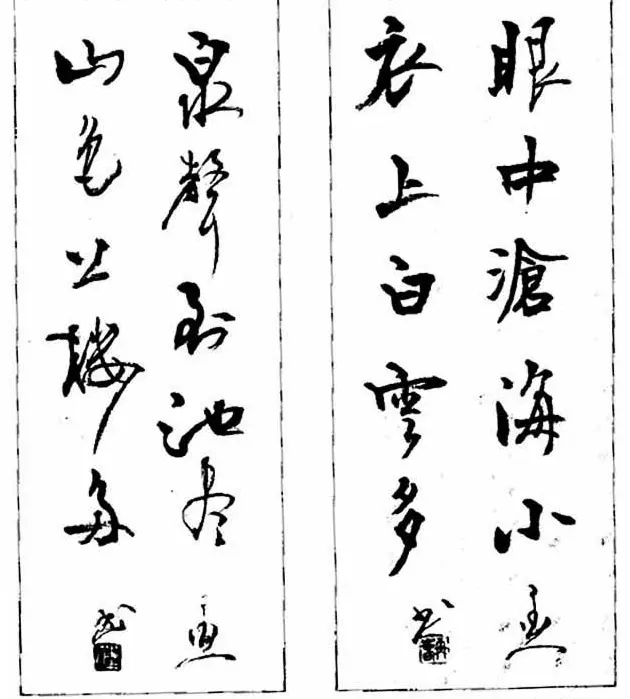 眼中滄海小
衣上白雲多
泉聲到池尽
山色上樓多